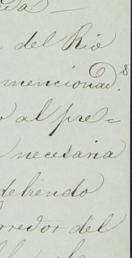 da —
del Rio
mencionad.s
al pre=
necesaria
debiendo
rredor del